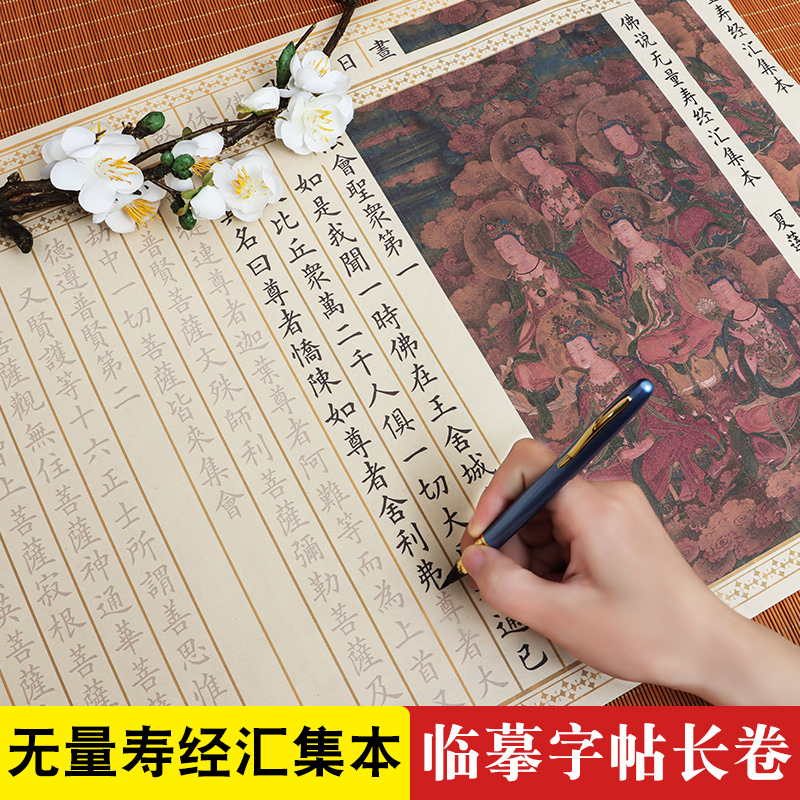 寿经汇集本
佛说无量寿经汇集本 夏莲
畫
日
會聖衆第一
如是我聞一時佛在王舍城
比丘衆萬二千人俱一切大
通已
名曰尊者憍陳如尊者舍利弗尊者大
連尊者迦葉尊者阿難等而為上首又
普賢菩薩文殊師利菩薩彌勒菩薩及
劫中一切菩薩皆來集會
德遵普賢第二
又賢護等十六正士所謂善思惟
菩薩觀無住菩薩神通華菩薩
上菩薩寂根菩薩
英菩薩
无量寿经汇集本
临摹字帖长卷